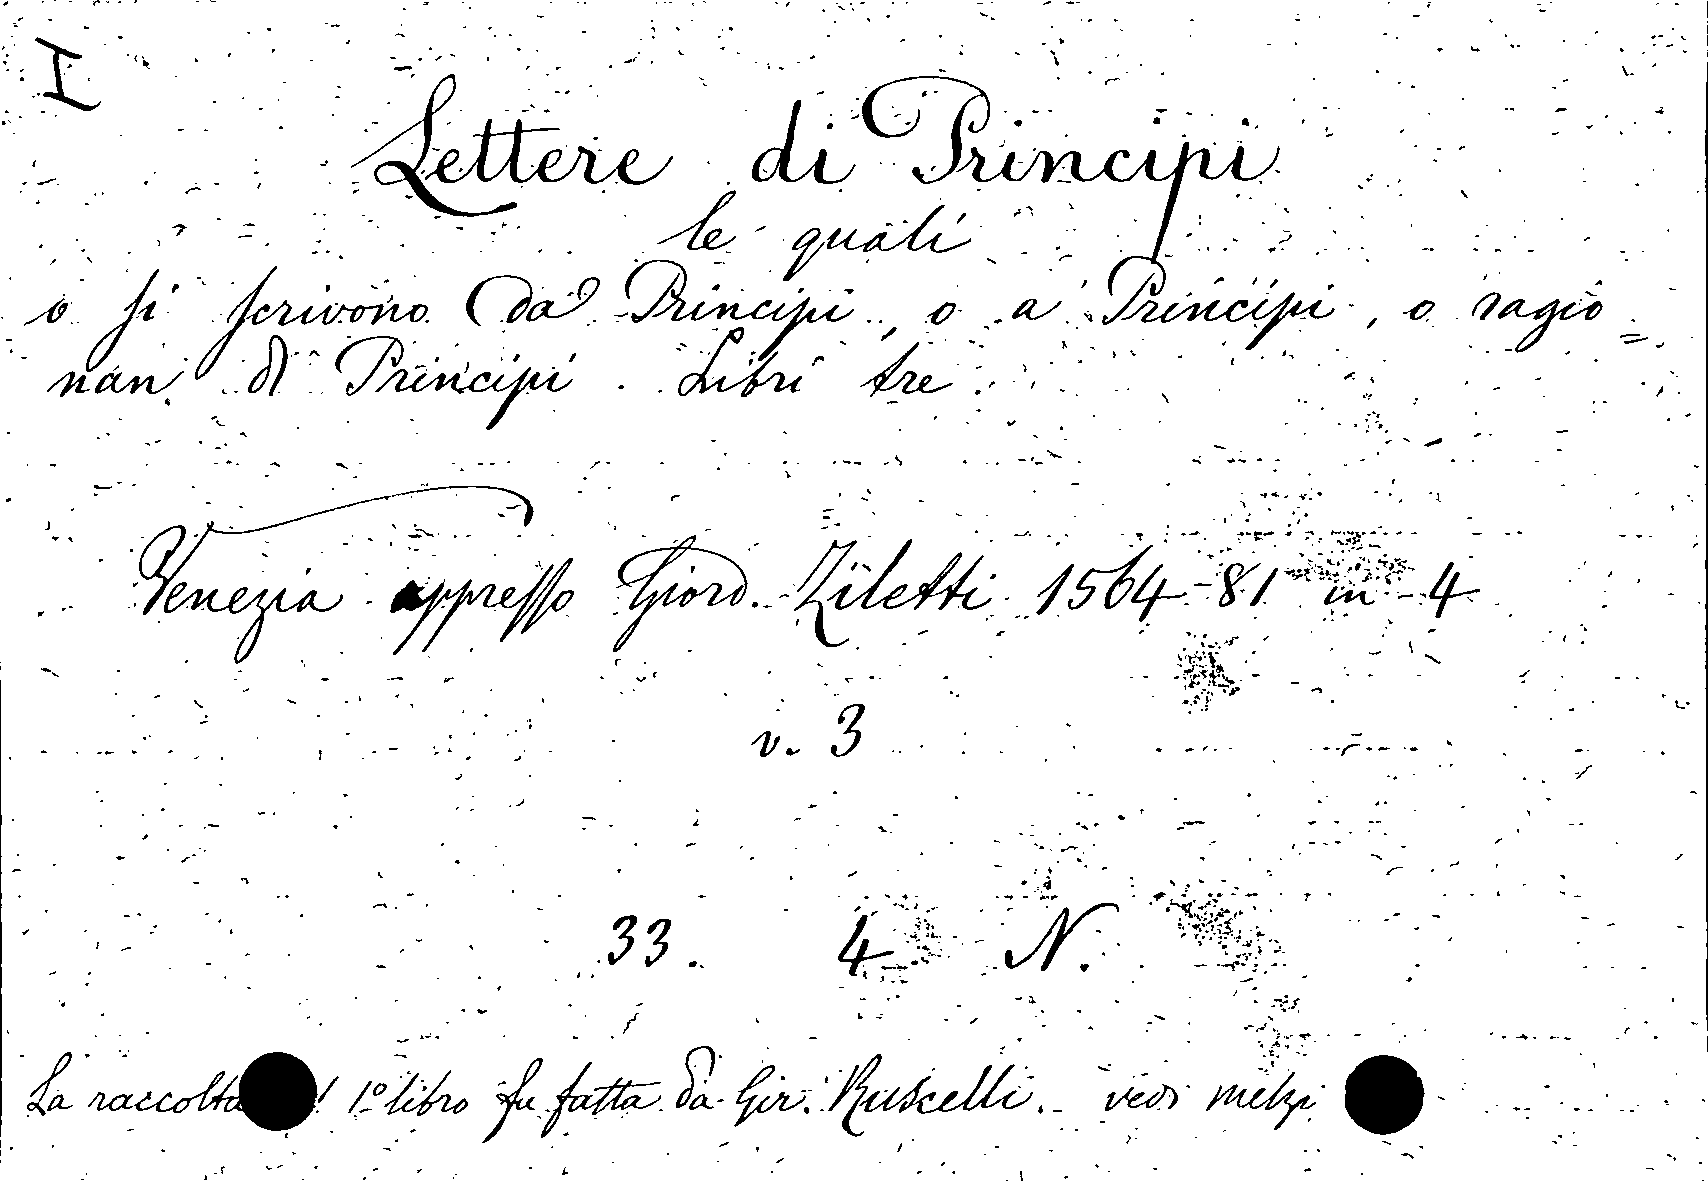 I
Lettere di Principi
le quali
o si scrivono da Principi, o a Principi, o ragio=
nan di Principi. Libri tre.
Venezia appresso Giord. Ziletti 1564-81 in 4
v. 3
33. 4 N.
La raccolta l 1º libro fu fatta da Gir. Ruscelli. vedi Melzi